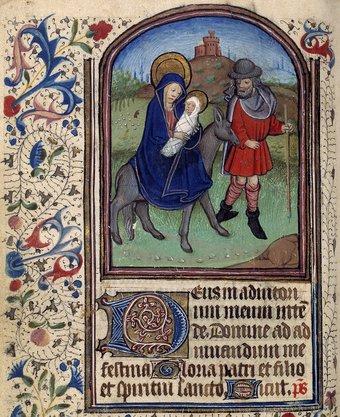 Deus in adiutori
um meum inte͂
de. Domine ad ad
iuuendum me
festina Gloria patri et filio
et spiritui sancto Sicut. ps